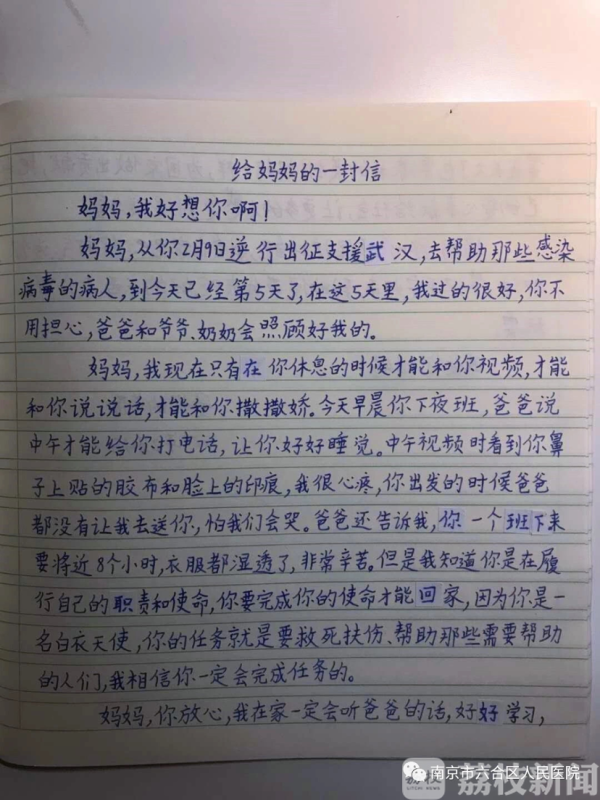 给妈妈的一封信
妈妈,我好想你啊!
妈妈,从你2月9日逆行出征支援武汉,去帮助那些感染
病毒的病人,到今天已经第5天了,在这5天里,我过的很好,你不
用担心,爸爸和爷爷、奶奶会照顾好我的。
妈妈,我现在只有在你休息的时候才能和你视频,才能
和你说说话,才能和你撒撒娇。今天早晨你下夜班,爸爸说
中午才能给你打电话,让你好好睡觉。中午视频时看到你鼻
子上贴的胶布和脸上的印痕,我很心疼,你出发的时候爸爸
都没有让我去送你,怕我们会哭。爸爸还告诉我,你一个班下来
要将近8个小时,衣服都湿透了,非常辛苦。但是我知道你是在履
行自己的职责和使命,你要完成你的使命才能回家,因为你是一
名白衣天使,你的任务就是要救死扶伤、帮助那些需要帮助
的人们,我相信你一定会完成任务的。
妈妈,你放心,我在家一定会听爸爸的话,好好学习,
南京市六合区人民医院
荔枝新闻